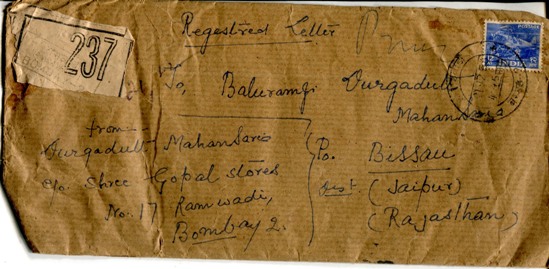 Registred Letter
237
To,
Baluramji Durgadutt
Mahansaria
from-
Durgadutt Mahansaria
c/o. Shree Gopal Stores
No. 17 Ramwadi,
Bombay 2.
Po. Bissau
Dist. (Jaipur)
(Rajasthan)
INDIA